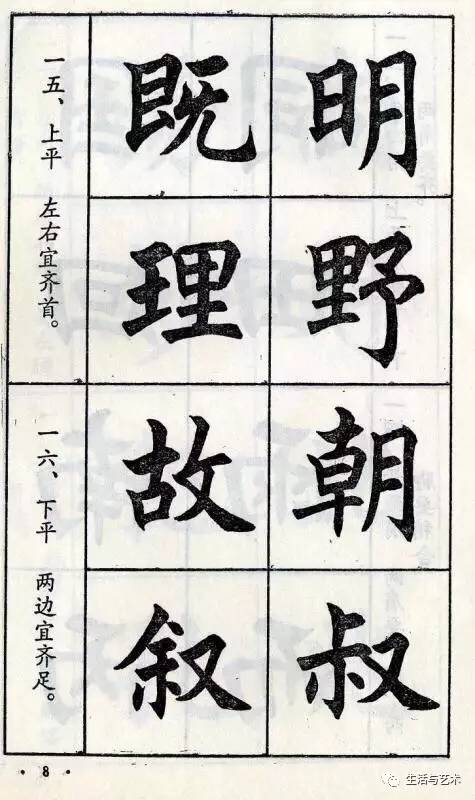 明野
既理
一五、上平 左右宜齐首。
朝叔
故叙
一六、下平 两边宜齐足。
· 8 ·
生活与艺术